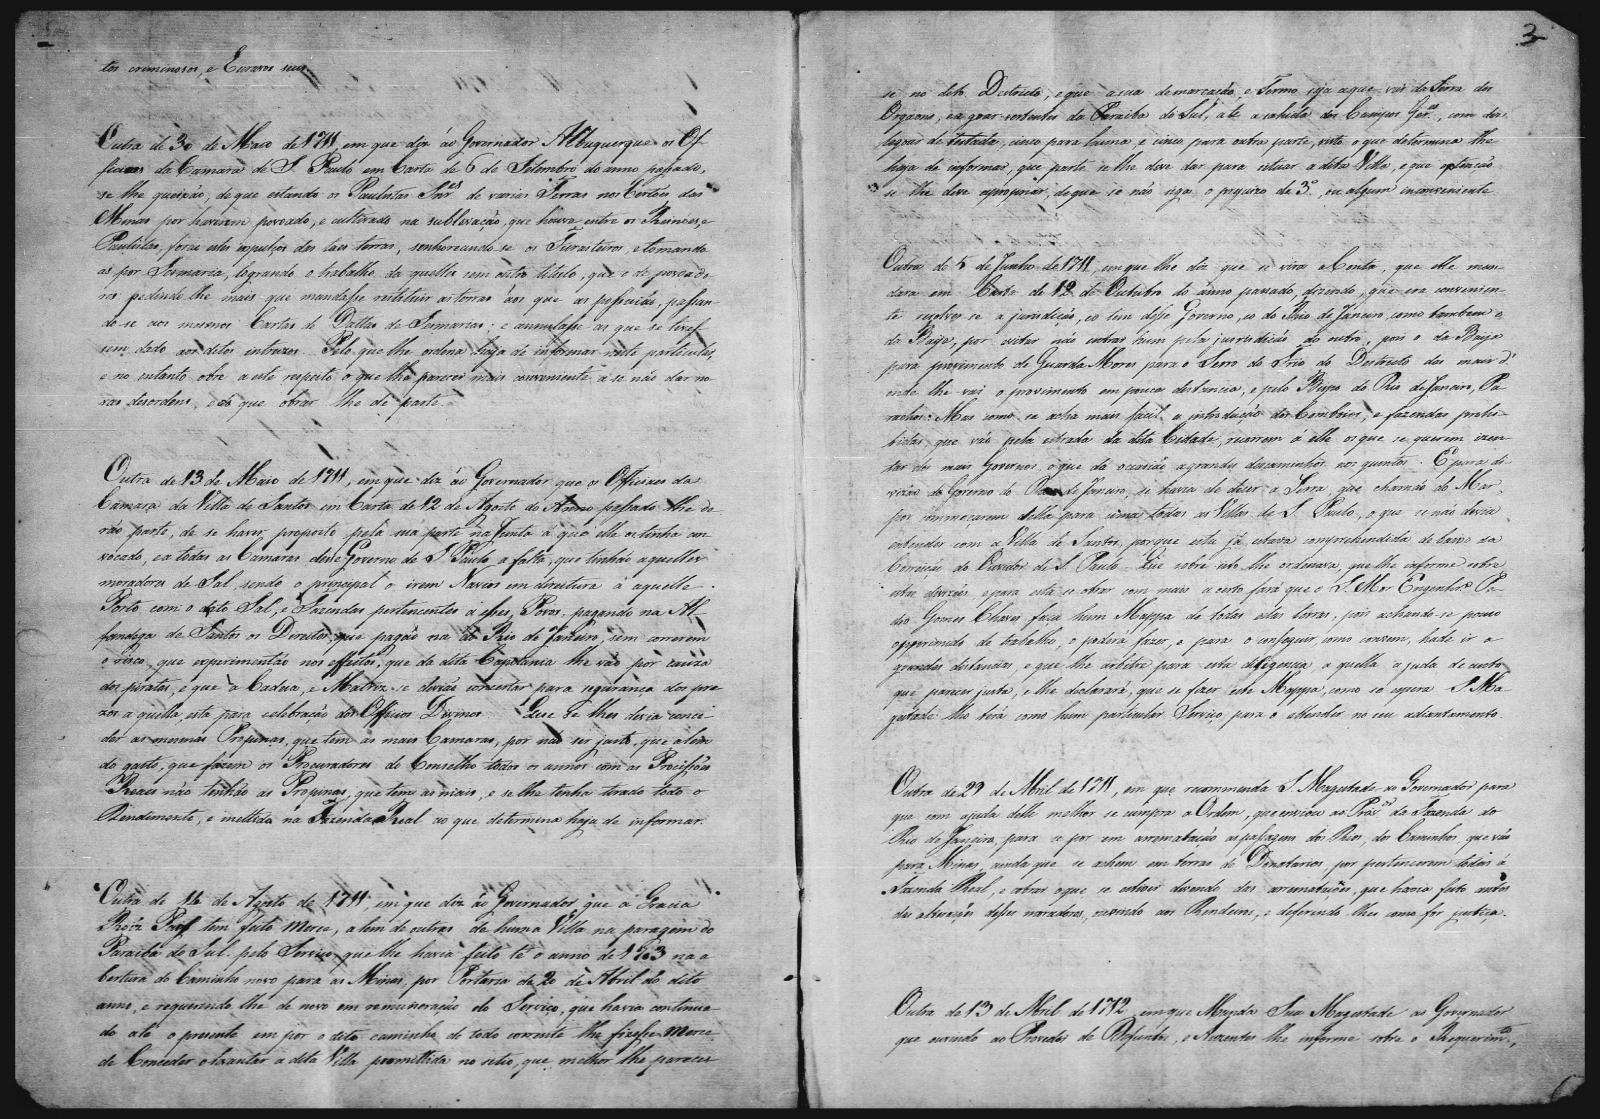 tos creminosos, e Escravos seus
Outra de 30 de Maio de 1711, em que diz ao Governador Albuquerque os Of-
ficiaes da Camara de S. Paulo em Carta de 6 de Setembro do anno passado,
se lhe queixão, de que estando os Paulistas Snr.es de varias Terras nos Certões das
Minas por haverem povoado, e cultivado na sublevação, que houve entre os Reinoes, e
Paulistas, forão estes expulsos das taes terras, senhoreando-se os Forasteiros, e tomando
as por Sesmaria, logrando o trabalho da quelles sem outro titulo, que o de povoado-
res pedindo lhe mais que mandasse restituir as terras aos que as possuião, passan-
do-se aos mesmos Cartas de Dattas de Sesmarias; e annulasse as que se tives-
sem dado aos ditos intruzos. Pelo que lhe ordena haja de informar neste particular,
e no entanto obre a este respeito o que lhe parecer mais conveniente a se não dar no-
vas desordens, e do que obrar lhe dê parte.
Outra de 13 de Maio de 1711, em que diz ao Governador que os Officiaes da
Camara da Villa de Santos em Carta de 12 de Agosto do Anno passado lhe de-
rão parte, de se haver proposto pela sua parte na Junta á que elle os tinha con-
vocado, e a todas as Camaras deste Governo de S. Paulo a falta, que tinhão aquelles
moradores de Sal, sendo o principal o irem Navios em direitura á aquelle
Porto com o dito Sal, e Fazendas pertencentes a esses Povos, pagando na Al-
fandega de Santos os Direitos, que pagão na do Rio de Janeiro, sem correrem
o risco, que experimentão nos effeitos, que da dita Capitania lhe vão por cauza
dos piratas, e que a Cadeia, e Matriz se devião concertar para segurança dos pre-
zos a quella esta para celebração dos Officios Divinos. Que se lhes devia conce-
der as mesmas Propinas, que tem as mais Camaras, por não ser justo, que alem
do gasto, que fazem os Procuradores do Conselho todos os annos com as Procissões
Reaes não tenhão as Propinas, que tem as mais, e se lhe tenha tirado todo o
Rendimento, e mettido na Fazenda Real ao que determina haja de informar.
Outra de 14 de Agosto de 1711 em que diz ao Governador que a Gracia
Roiz Paes tem feito Merce, a lem de outras de huma Villa na paragem do
Paraiba do Sul, pelo Serviço, que lhe havia feito té o anno de 1703 na a
bertura do Caminho novo para as Minas, por Portaria de 20 de Abril do dito
anno, e requerendo lhe de novo em remuneração do Serviço, que havia continua-
do até o presente em por o dito caminho de todo corrente lhe fizesse Merce
de Conceder e levantar a dita Villa promettida no sitio, que melhor lhe parecer
3
se no dito Destricto, e que a sua demarcação, e Termo seja a que vai da Serra dos
Orgaons, e agoas vertentes da Paraiba do Sul, até a sahida dos Campos Ger.es, com dez
legoas de testada, cinco para huma, e cinco para outra parte, visto o que determina lhe
haja de informar, que parte se lhe deve dar para cituar a dita Villa, e que extenção
se lhe deve apropriar, de que se não siga o prejuizo de 3.º, ou algum inconveniente
Outra de 5 de Junho de 1711, em que lhe diz que se vira a Conta, que elle man-
dara em Carta de 12 de Outubro do anno passado, dizendo, que era convenien-
te rezolver-se a jurisdição, e o tem desse Governo, e o do Rio de Janeiro, como tambem o
da Bahia, por evitar não entrar hum pela jurisdição do outro, pois o da Bahia
para provimento de Guarda Mores para o Serro do Frio do Destricto das mais d'
onde lhe vai o provimento em pouca distancia, e pelo Bispo do Rio de Janeiro, Pa-
rachos: Mas como se acha mais facil a introdução dos Comboios, e fazendas prohi-
bidas, que vão pela estrada da dita Cidade, recorrem á elle os que se querem izen-
tar dos mais Governos, o que da occasião a grandes descaminhos nos quintos. E para di-
vizão do Governo do Rio de Janeiro, se havia de dizer a Serra, que chamão do Mar,
por começarem della para cima todas as Villas de S. Paulo, o que se não devia
entender com a Villa de Santos, porque esta já estava comprehendida de baixo da
Correição do Ouvidor de S. Paulo. Que sobre isto lhe ordenava, que lhe informe sobre
esta divizão, e para esta se obrar com mais acerto fará que o S. Mor Engenhr.º Pe-
dro Gomes Chaves faça hum Mappa de todas estas terras, pois achando-se pouco
opprimido de trabalho, o poderá fazer, e para o conseguir, como convem, hade ir a
grandes distancias, e que lhe arbitre para esta deligencia a quella ajuda de custo
que parecer justa, e lhe declarará, que se fazer este Mappa, como se espera S. Ma-
gestade lhe terá como hum particular Serviço para o attender no seu adiantamento.
Outra de 29 de Abril de 1711, em que recommenda S. Magestade ao Governador para
que com ajuda delle melhor se cumpra a Ordem, que enviou ao Pro.or da Fazenda do
Rio de Janeiro, para se por em arrematação as passagens dos Rios, dos Caminhos, que vão
para Minas, ainda que se achem em terras de Donatarios, por pertencerem todas á
Fazenda Real, e cobrar o que se estiver devendo das arrematações, que havia feito antes
das alterações desses moradores, ouvindo aos Rendeiros, e deferindo lhes como for justiça.
Outra de 13 de Abril de 1712, em que Manda Sua Magestade ao Governador
que ouvindo ao Provedor de Defuntos, e Auzentes lhe informe sobre o Requerim.to,